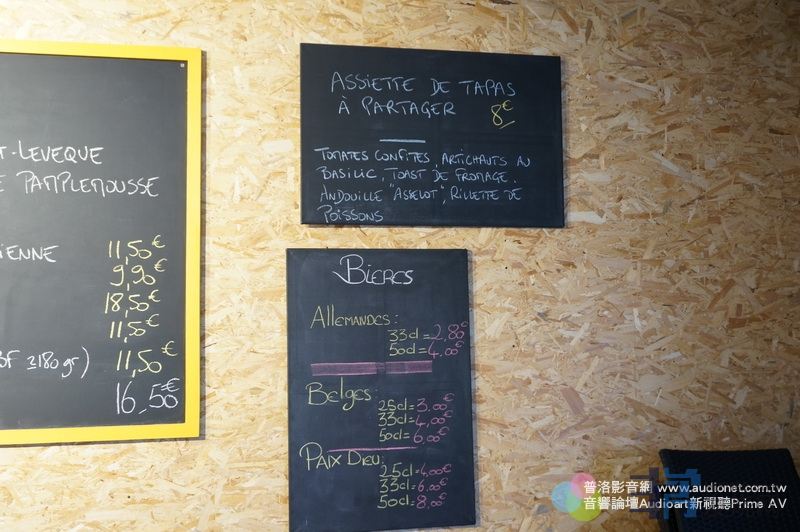 T-LEVEQUE
E PAMPLEMOUSSE
IENNE 11,50€
9,90€
18,50€
11,50€
BF ≥180 gr) 11,50€
16,50€
ASSIETTE DE TAPAS
À PARTAGER 8€
TOMATES CONFITES, ARTICHAUTS AU
BASILIC, TOAST DE FROMAGE,
ANDOUILLE "ASSELOT", RILLETTE DE
POISSONS
BIERES
Allemandes:
33cl = 2,80€
50cl = 4,00€
Belges:
25cl = 3,00€
33cl = 4,00€
50cl = 6,00€
PAIX DIEU:
25cl = 4,00€
33cl = 6,00€
50cl = 8,00€
普洛影音網 www.audionet.com.tw
音響論壇Audioart新視聽Prime AV